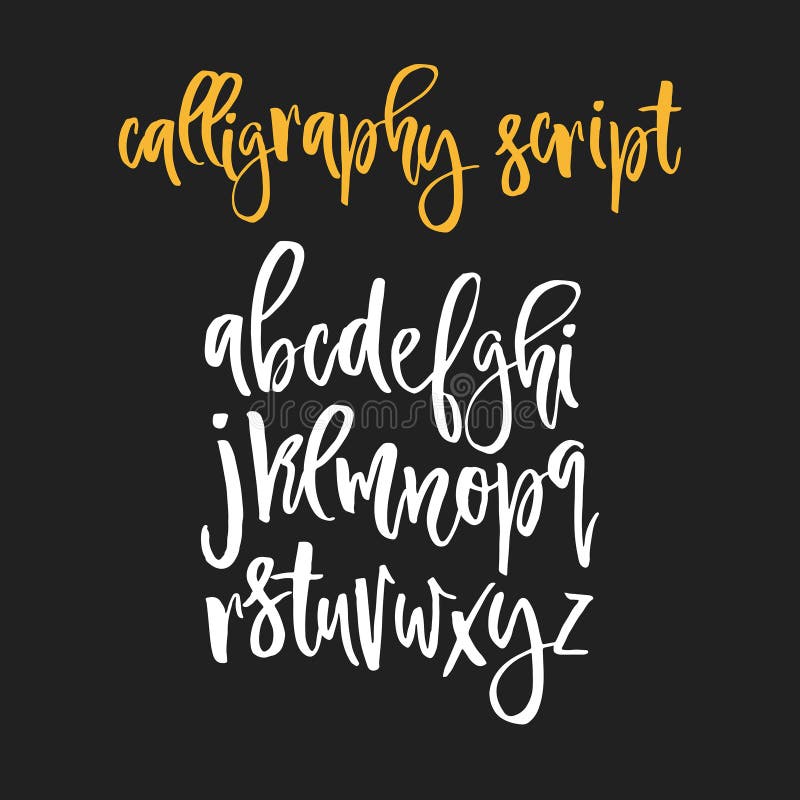 calligraphy script
abcdefghi
jklmnopq
rstuvwxyz
dreamstime